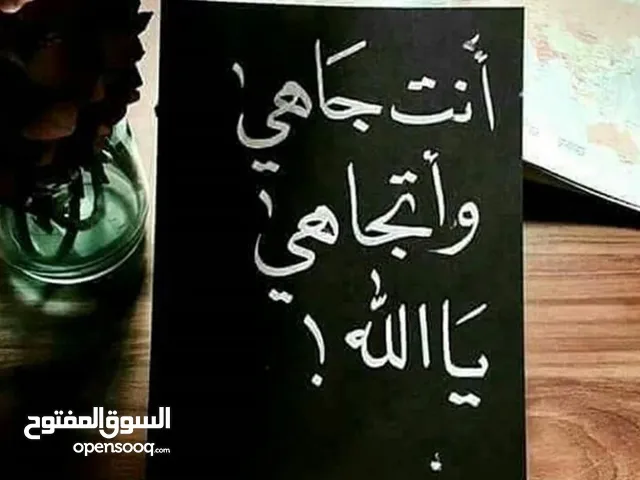 أنت جَاهي
وأتجاهي
يَا الله !
السوق المفتوح
opensooq.com